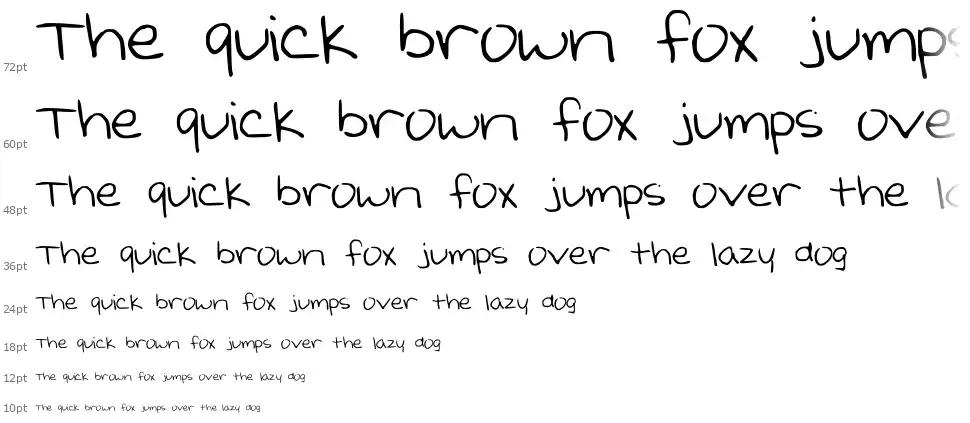 72pt The quick brown fox jumps
60pt The quick brown fox jumps ove
48pt The quick brown fox jumps over the
36pt The quick brown fox jumps over the lazy dog
24pt The quick brown fox jumps over the lazy dog
18pt The quick brown fox jumps over the lazy dog
12pt The quick brown fox jumps over the lazy dog
10pt The quick brown fox jumps over the lazy dog